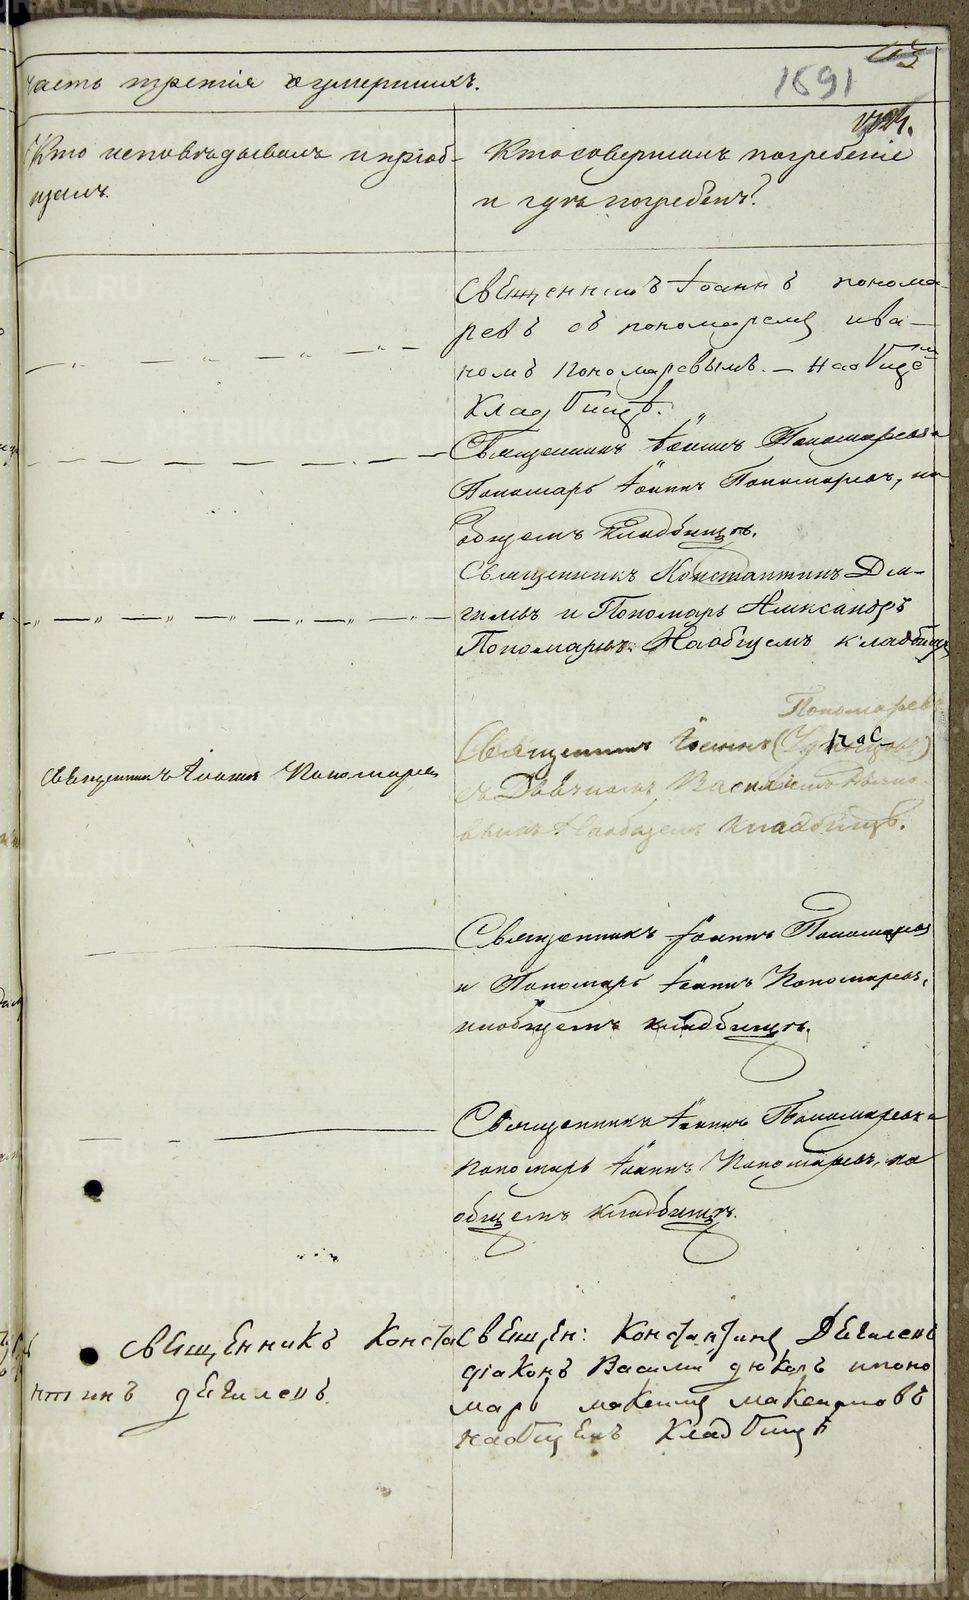 часть третія о умершихъ.
1891
Кто исповѣдывалъ и пріоб-
щалъ.
Кто совершалъ погребеніе
и гдѣ погребенъ?
священникъ Іоаннъ понома
ревъ съ пономаремъ ива—
номъ пономаревымъ. — На общем
кладбищѣ.
Священникъ Іоаннъ Пономаревъ и
Пономарь Іоаннъ Пономаревъ, на
общемъ кладбищѣ.
Священникъ Константинъ Де-
гилевъ и Пономарь Александръ
Пономаревъ. На общемъ кладбищѣ
Пономаревъ
Священникъ Іоаннъ
Священникъ Іоаннъ Пономаревъ
съ Дьячкомъ Василіемъ
На общемъ кладбищѣ.
Священникъ Іоаннъ Пономаревъ
и Пономарь Іоаннъ Пономаревъ,
на общемъ кладбищѣ.
Священникъ Іоаннъ Пономаревъ и
пономарь Іоаннъ Пономаревъ, на
общемъ кладбищѣ.
священникъ Конста
нтинъ дегилевъ.
священ: Константинъ Дегилевъ
діаконъ Василій и поно
марь максимъ
на общемъ кладбищѣ
METRIKI.GASO-URAL.RU